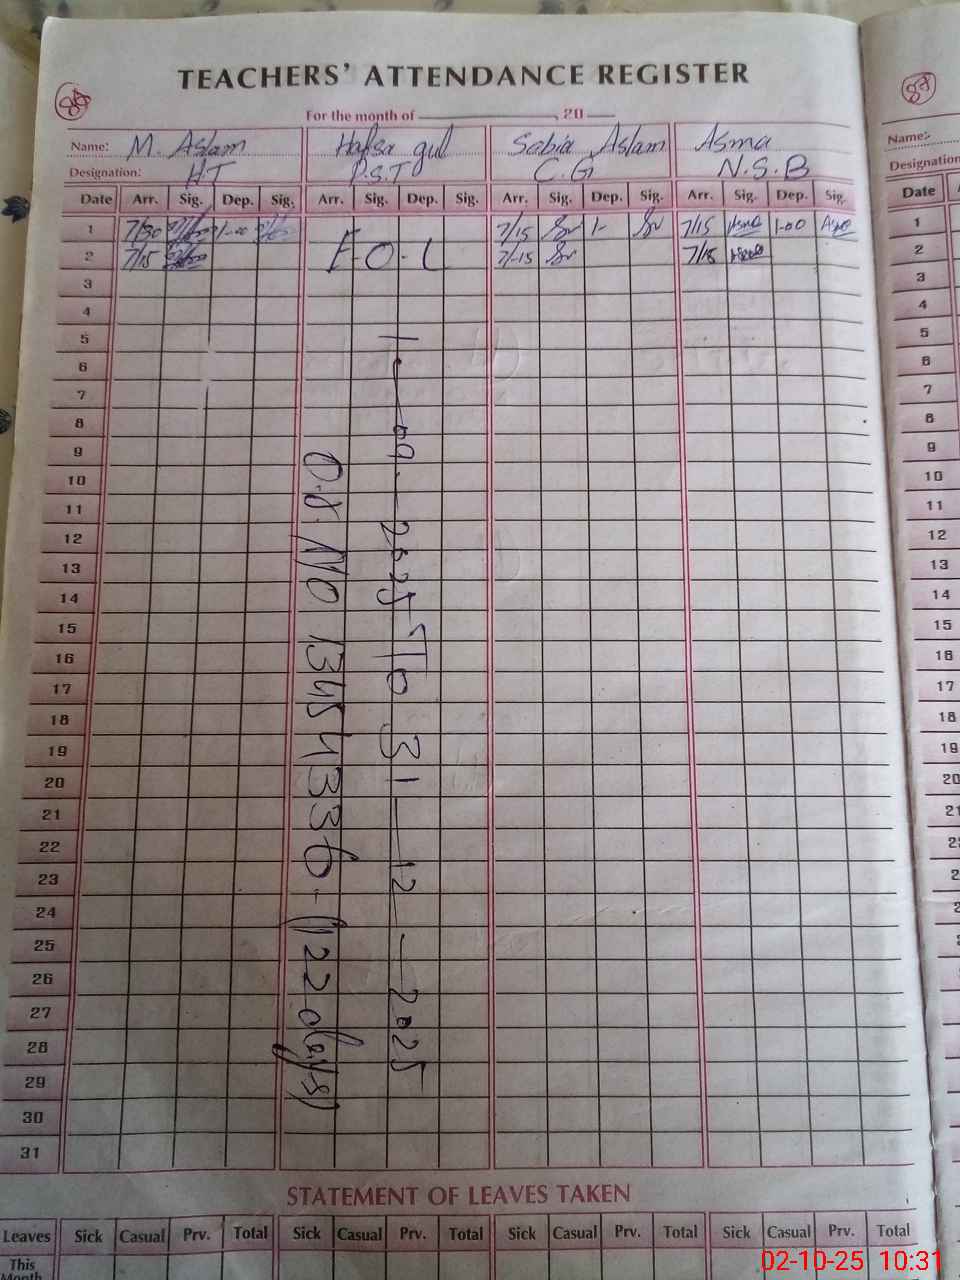 TEACHERS' ATTENDANCE REGISTER
88
For the month of , 20
Name: M. Aslam Hafsa gul Sobia Aslam Asma
Designation: HT P.S.T C.G N.S.B
Date Arr. Sig. Dep. Sig. Arr. Sig. Dep. Sig. Arr. Sig. Dep. Sig. Arr. Sig. Dep. Sig.
1 7/30 1-00 7/15 1- 7/15 Asma 1-00 Asma
2 7/15 E.O.L 7/-15 7/15 Asma
3
4
5
6
7
8
9
10
11
12
13
14
15
16
17
18
19
20
21
22
23
24
25
26
27
28
29
30
31
1-09-2025 To 31-12-2025
O.S. No 13454336-(122 days)
STATEMENT OF LEAVES TAKEN
Leaves Sick Casual Prv. Total Sick Casual Prv. Total Sick Casual Prv. Total Sick Casual Prv. Total
This
Month
Name:-
Designation
Date
1
2
3
4
5
6
7
8
9
10
11
12
13
14
15
16
17
18
19
20
02-10-25 10:31